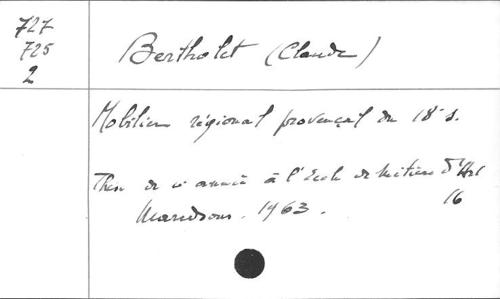 727
725
2
Bertholet (Claude)
Mobilier régional provençal du 18e s.
Thèse de année à l'Ecole de Métiers d'Art
1963.
16